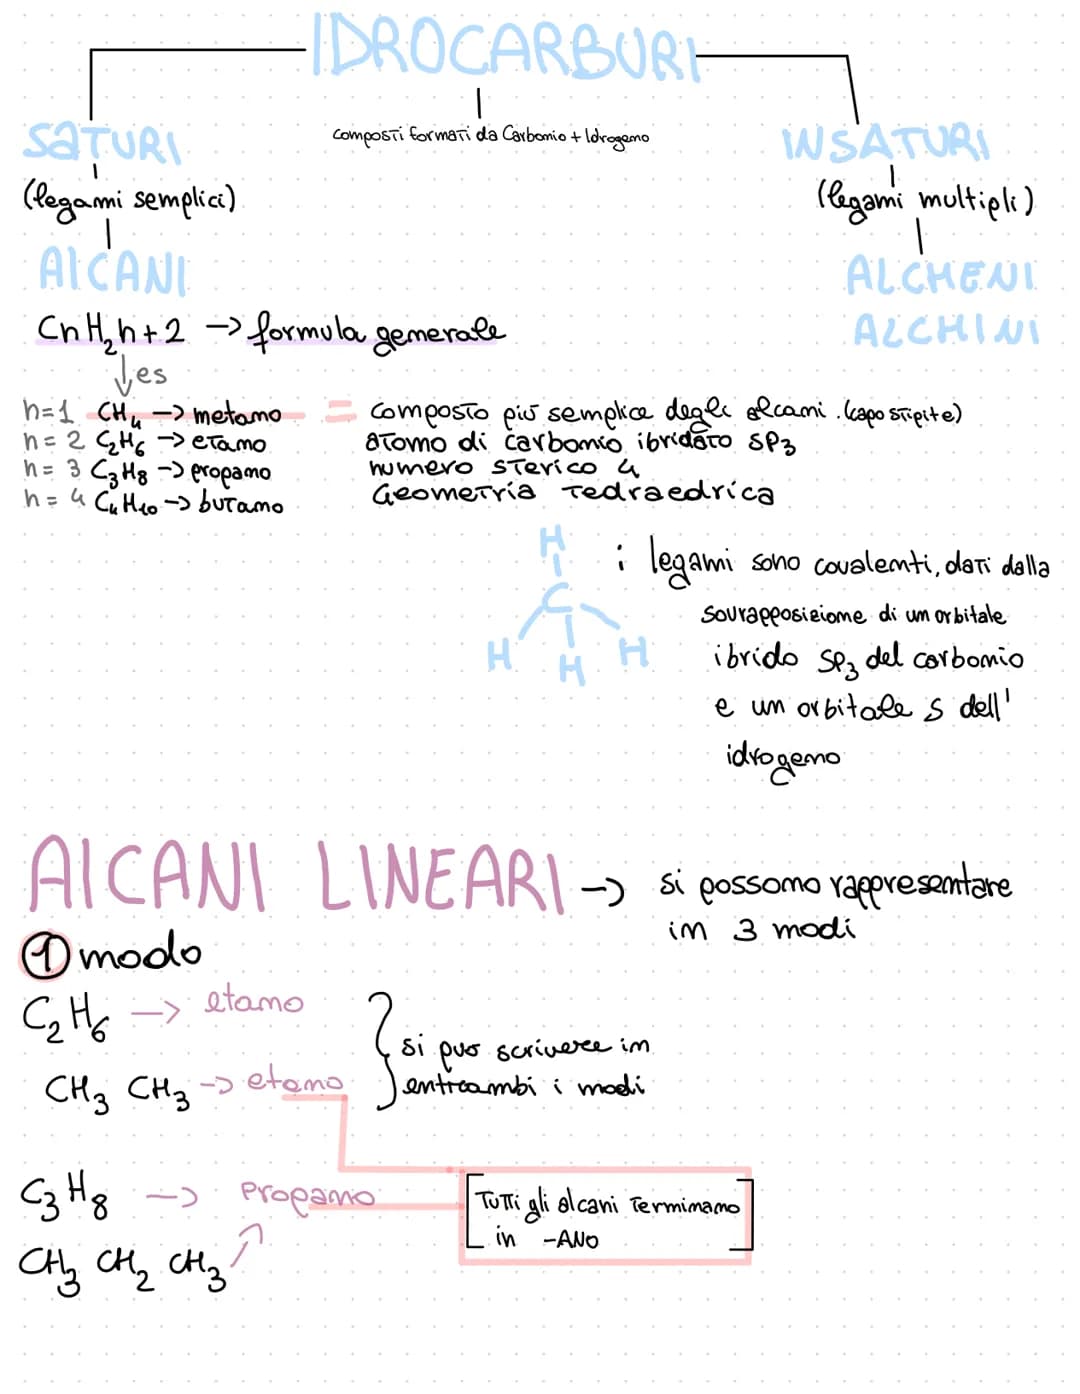 IDROCARBURI
composti formati da Carbonio + Idrogeno
SATURI
(legami semplici)
AlCANI
CnH₂n+2 -> formula generale
es
n=1 CH₄ -> metano = composto più semplice degli alcani. (capo stipite)
n= 2 C₂H₆ -> etano atomo di carbonio ibridato SP₃
n= 3 C₃H₈ -> propano numero sterico 4
n= 4 C₄H₁₀ -> butano Geometria tedraedrica
INSATURI
(legami multipli)
ALCHENI
ALCHINI
H
C
H H H
i legami sono covalenti, dati dalla
sovrapposizione di un orbitale
ibrido SP₃ del carbonio
e un orbitale s dell'
idrogeno
AlCANI LINEARI -> si possono rappresentare
in 3 modi
① modo
C₂H₆ -> etano
CH₃ CH₃ -> etano
} si può scrivere in
entrambi i modi
C₃H₈ -> Propano
CH₃ CH₂ CH₃
[Tutti gli alcani terminano
in -ANO]